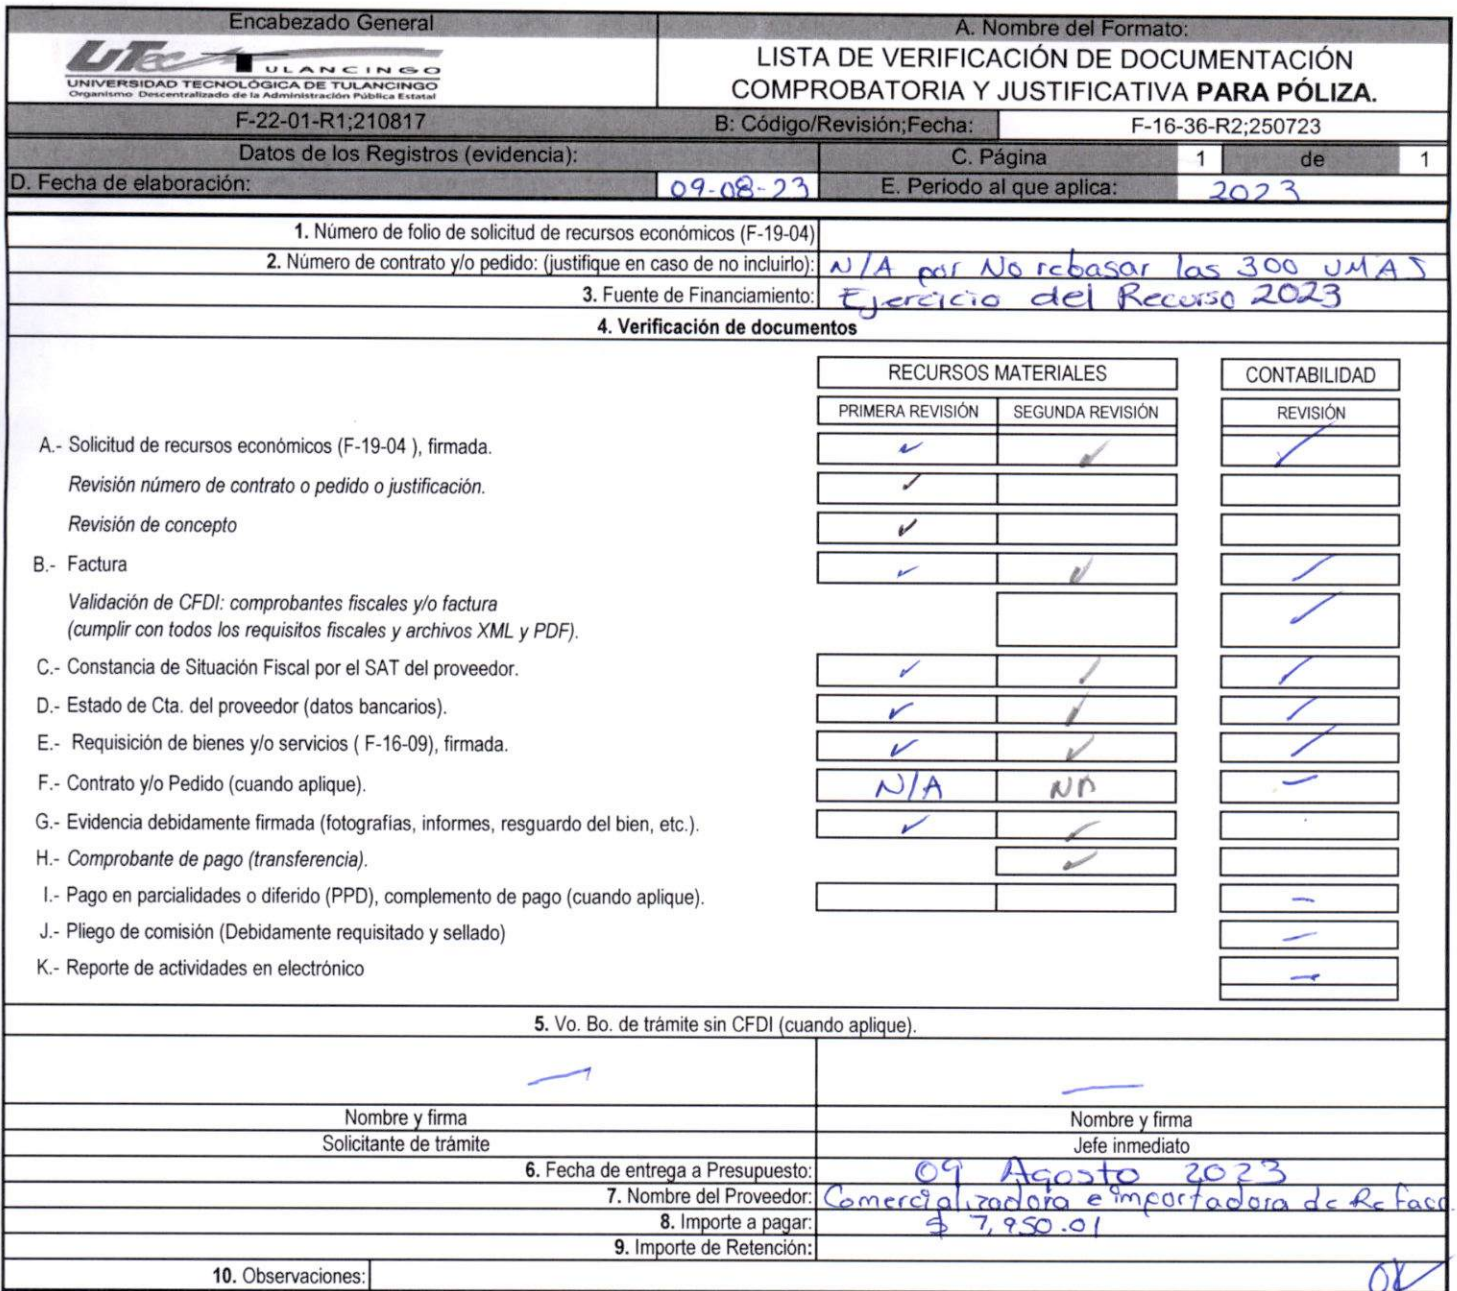 Encabezado General
A. Nombre del Formato:
UTec TULANCINGO
UNIVERSIDAD TECNOLÓGICA DE TULANCINGO
Organismo Descentralizado de la Administración Pública Estatal
LISTA DE VERIFICACIÓN DE DOCUMENTACIÓN
COMPROBATORIA Y JUSTIFICATIVA PARA PÓLIZA.
F-22-01-R1;210817 B: Código/Revisión;Fecha: F-16-36-R2;250723
Datos de los Registros (evidencia): C. Página 1 de 1
D. Fecha de elaboración: 09-08-23 E. Periodo al que aplica: 2023
1. Número de folio de solicitud de recursos económicos (F-19-04)
2. Número de contrato y/o pedido: (justifique en caso de no incluirlo): N/A por No rebasar las 300 UMAS
3. Fuente de Financiamiento: Ejercicio del Recurso 2023
4. Verificación de documentos
RECURSOS MATERIALES CONTABILIDAD
PRIMERA REVISIÓN SEGUNDA REVISIÓN REVISIÓN
A.- Solicitud de recursos económicos (F-19-04 ), firmada. ✓ ✓ ✓
Revisión número de contrato o pedido o justificación. ✓
Revisión de concepto ✓
B.- Factura ✓ ✓ ✓
Validación de CFDI: comprobantes fiscales y/o factura
(cumplir con todos los requisitos fiscales y archivos XML y PDF). ✓
C.- Constancia de Situación Fiscal por el SAT del proveedor. ✓ ✓ ✓
D.- Estado de Cta. del proveedor (datos bancarios). ✓ ✓ ✓
E.- Requisición de bienes y/o servicios ( F-16-09), firmada. ✓ ✓ ✓
F.- Contrato y/o Pedido (cuando aplique). N/A NA —
G.- Evidencia debidamente firmada (fotografías, informes, resguardo del bien, etc.). ✓ ✓
H.- Comprobante de pago (transferencia). ✓
I.- Pago en parcialidades o diferido (PPD), complemento de pago (cuando aplique). —
J.- Pliego de comisión (Debidamente requisitado y sellado) —
K.- Reporte de actividades en electrónico —
5. Vo. Bo. de trámite sin CFDI (cuando aplique).
— —
Nombre y firma Nombre y firma
Solicitante de trámite Jefe inmediato
6. Fecha de entrega a Presupuesto: 09 Agosto 2023
7. Nombre del Proveedor: Comercializadora e importadora de Refacc.
8. Importe a pagar: $ 7,950.01
9. Importe de Retención:
10. Observaciones: OK